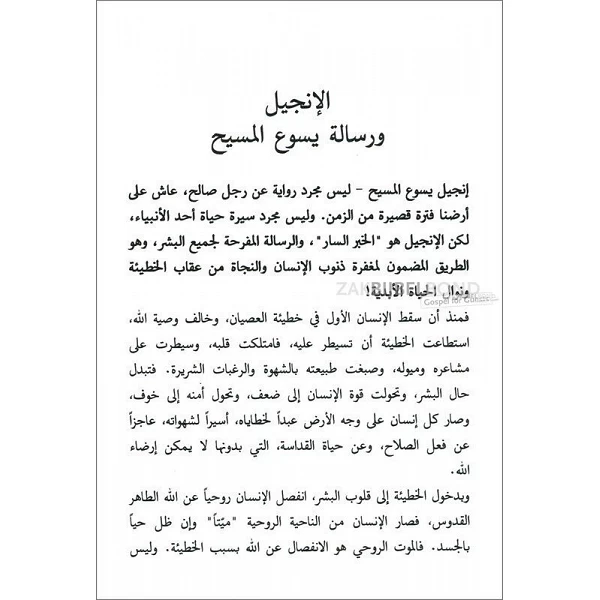 الإنجيل
ورسالة يسوع المسيح
إنجيل يسوع المسيح – ليس مجرد رواية عن رجل صالح، عاش على
أرضنا فترة قصيرة من الزمن. وليس مجرد سيرة حياة أحد الأنبياء،
لكن الإنجيل هو "الخبر السار"، والرسالة المفرحة لجميع البشر، وهو
الطريق المضمون لمغفرة ذنوب الإنسان والنجاة من عقاب الخطيئة
ونوال الحياة الأبدية!
ZAKBIJBELBOND
Gospel for Guests
فمنذ أن سقط الإنسان الأول في خطيئة العصيان، وخالف وصية الله،
استطاعت الخطيئة أن تسيطر عليه، فامتلكت قلبه، وسيطرت على
مشاعره وميوله، وصبغت طبيعته بالشهوة والرغبات الشريرة. فتبدل
حال البشر، وتحولت قوة الإنسان إلى ضعف، وتحول أمنه إلى خوف،
وصار كل إنسان على وجه الأرض عبداً لخطاياه، أسيراً لشهواته، عاجزاً
عن فعل الصلاح، وعن حياة القداسة، التي بدونها لا يمكن إرضاء
الله.
وبدخول الخطيئة إلى قلوب البشر، انفصل الإنسان روحياً عن الله الطاهر
القدوس، فصار الإنسان من الناحية الروحية "ميّتاً" وإن ظل حياً
بالجسد. فالموت الروحي هو الانفصال عن الله بسبب الخطيئة. وليس